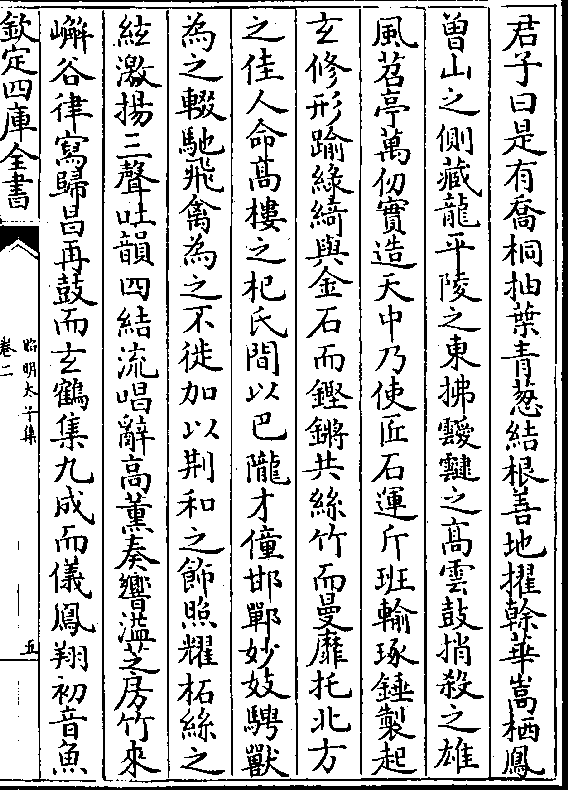 君子曰是有喬桐抽葉青葱結根善地擢榦華嵩栖鳳
曽山之側藏龍平陵之東拂靉靆之髙雲鼓捎殺之雄
風苕亭萬仞實造天中乃使匠石運斤班輸琢錘製起
玄修形踰綠綺與金石而鏗鏘共絲竹而曼靡托北方
之佳人命髙樓之杞氏間以巴隴才僮邯鄲妙妓騁獸
為之輟馳飛禽為之不徙加以荆和之飾照耀柘絲之
絃激揚三聲吐韻四結流唱辭高薫奏響溢芝房竹來
嶰谷律寫歸昌再鼓而玄鶴集九成而儀鳳翔初音魚
欽定四庫全書
昭明太子集
卷二
五